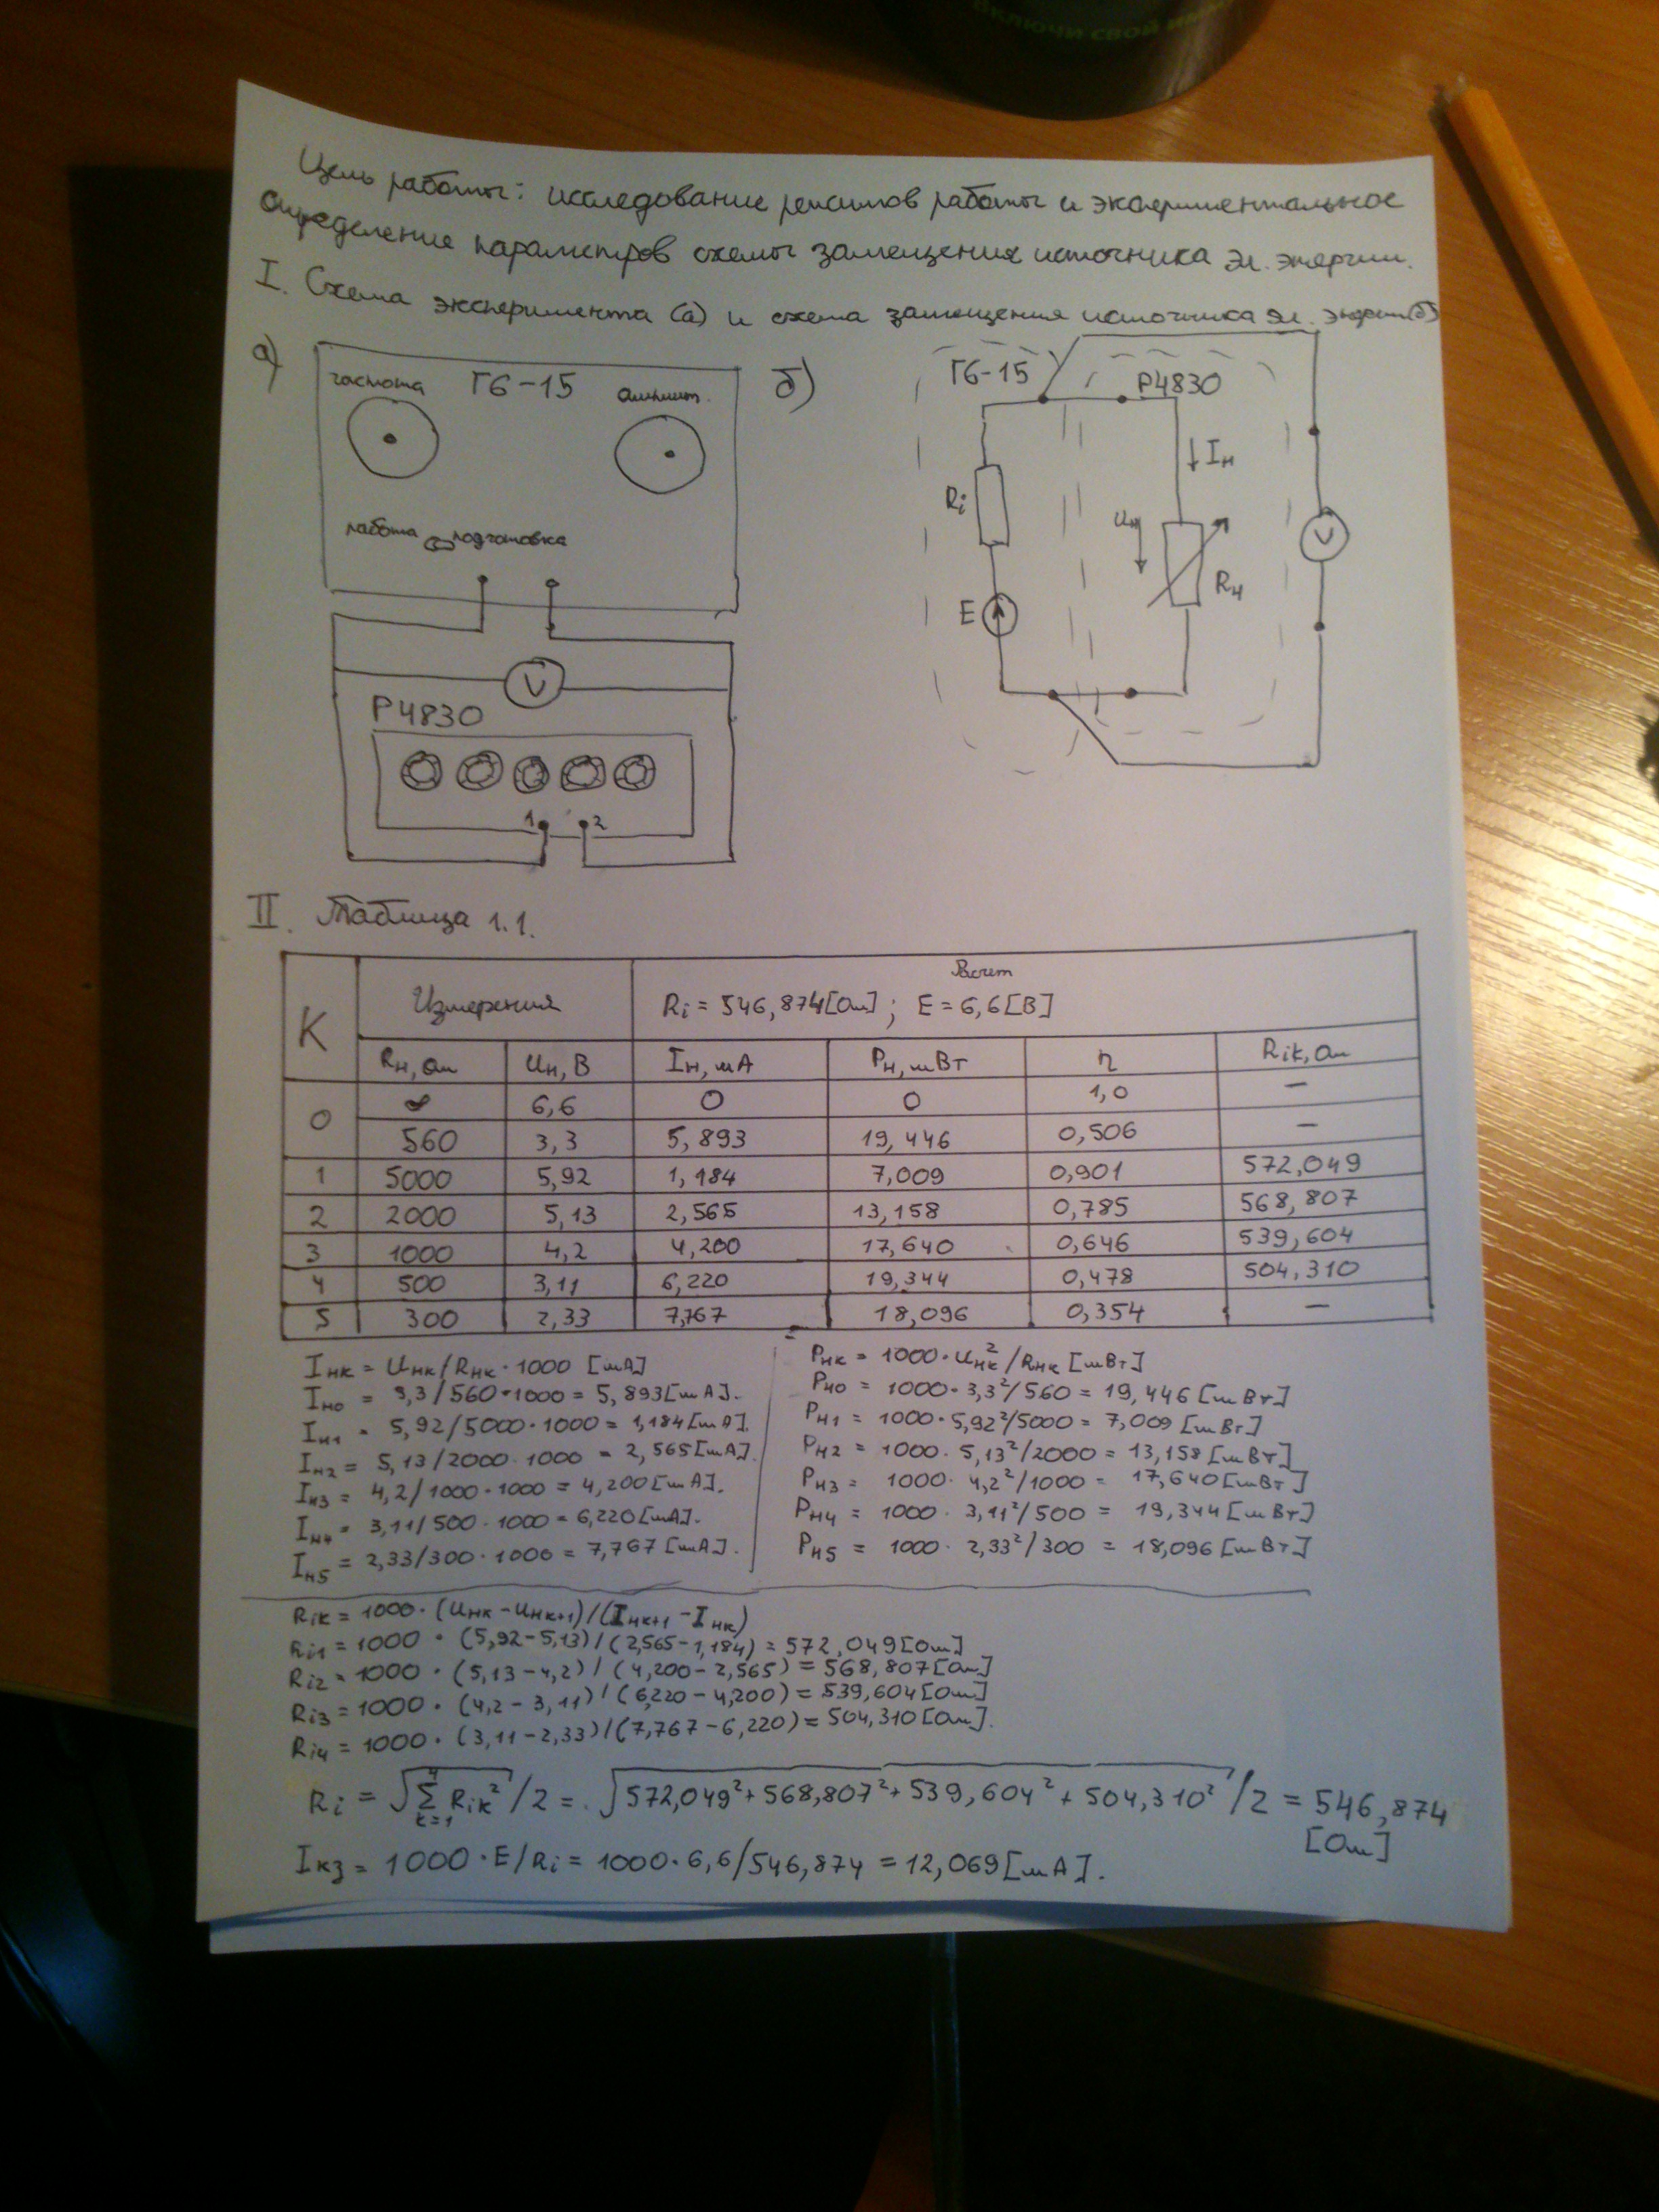 ВКЛЮЧИ СВОЙ
Цель работы: исследование режимов работы и экспериментальное
определение параметров схемы замещения источника эл. энергии.
I. Схема эксперимента (а) и схема замещения источника эл. энергии (б)
а)
частота Г6-15 амплит.
работа подготовка
V
Р4830
1 2
б)
Г6-15 Р4830
Iн
Ri
Uн
V
Rн
E
II. Таблица 1.1.
K Измерения Расчет
Ri = 546,874[Ом]; E = 6,6[В]
Rн, Ом Uн, В Iн, мА Pн, мВт η Rik, Ом
0 ∞ 6,6 0 0 1,0 —
560 3,3 5,893 19,446 0,506 —
1 5000 5,92 1,184 7,009 0,901 572,049
2 2000 5,13 2,565 13,158 0,785 568,807
3 1000 4,2 4,200 17,640 0,646 539,604
4 500 3,11 6,220 19,344 0,478 504,310
5 300 2,33 7,767 18,096 0,354 —
Iнк = Uнк/Rнк · 1000 [мА]
Iн0 = 3,3/560 · 1000 = 5,893[мА].
Iн1 = 5,92/5000 · 1000 = 1,184[мА].
Iн2 = 5,13/2000 · 1000 = 2,565[мА].
Iн3 = 4,2/1000 · 1000 = 4,200[мА].
Iн4 = 3,11/500 · 1000 = 6,220[мА].
Iн5 = 2,33/300 · 1000 = 7,767[мА].
Pнк = 1000 · Uнк²/Rнк [мВт]
Pн0 = 1000 · 3,3²/560 = 19,446[мВт]
Pн1 = 1000 · 5,92²/5000 = 7,009[мВт]
Pн2 = 1000 · 5,13²/2000 = 13,158[мВт]
Pн3 = 1000 · 4,2²/1000 = 17,640[мВт]
Pн4 = 1000 · 3,11²/500 = 19,344[мВт]
Pн5 = 1000 · 2,33²/300 = 18,096[мВт]
Rik = 1000 · (Uнк - Uнк+1)/(Iнк+1 - Iнк)
Ri1 = 1000 · (5,92-5,13)/(2,565-1,184) = 572,049[Ом]
Ri2 = 1000 · (5,13-4,2)/(4,200-2,565) = 568,807[Ом]
Ri3 = 1000 · (4,2-3,11)/(6,220-4,200) = 539,604[Ом]
Ri4 = 1000 · (3,11-2,33)/(7,767-6,220) = 504,310[Ом].
Ri = √(∑ k=1 4 Rik²)/2 = √(572,049² + 568,807² + 539,604² + 504,310²)/2 = 546,874
[Ом]
Iкз = 1000 · E/Ri = 1000 · 6,6/546,874 = 12,069[мА].